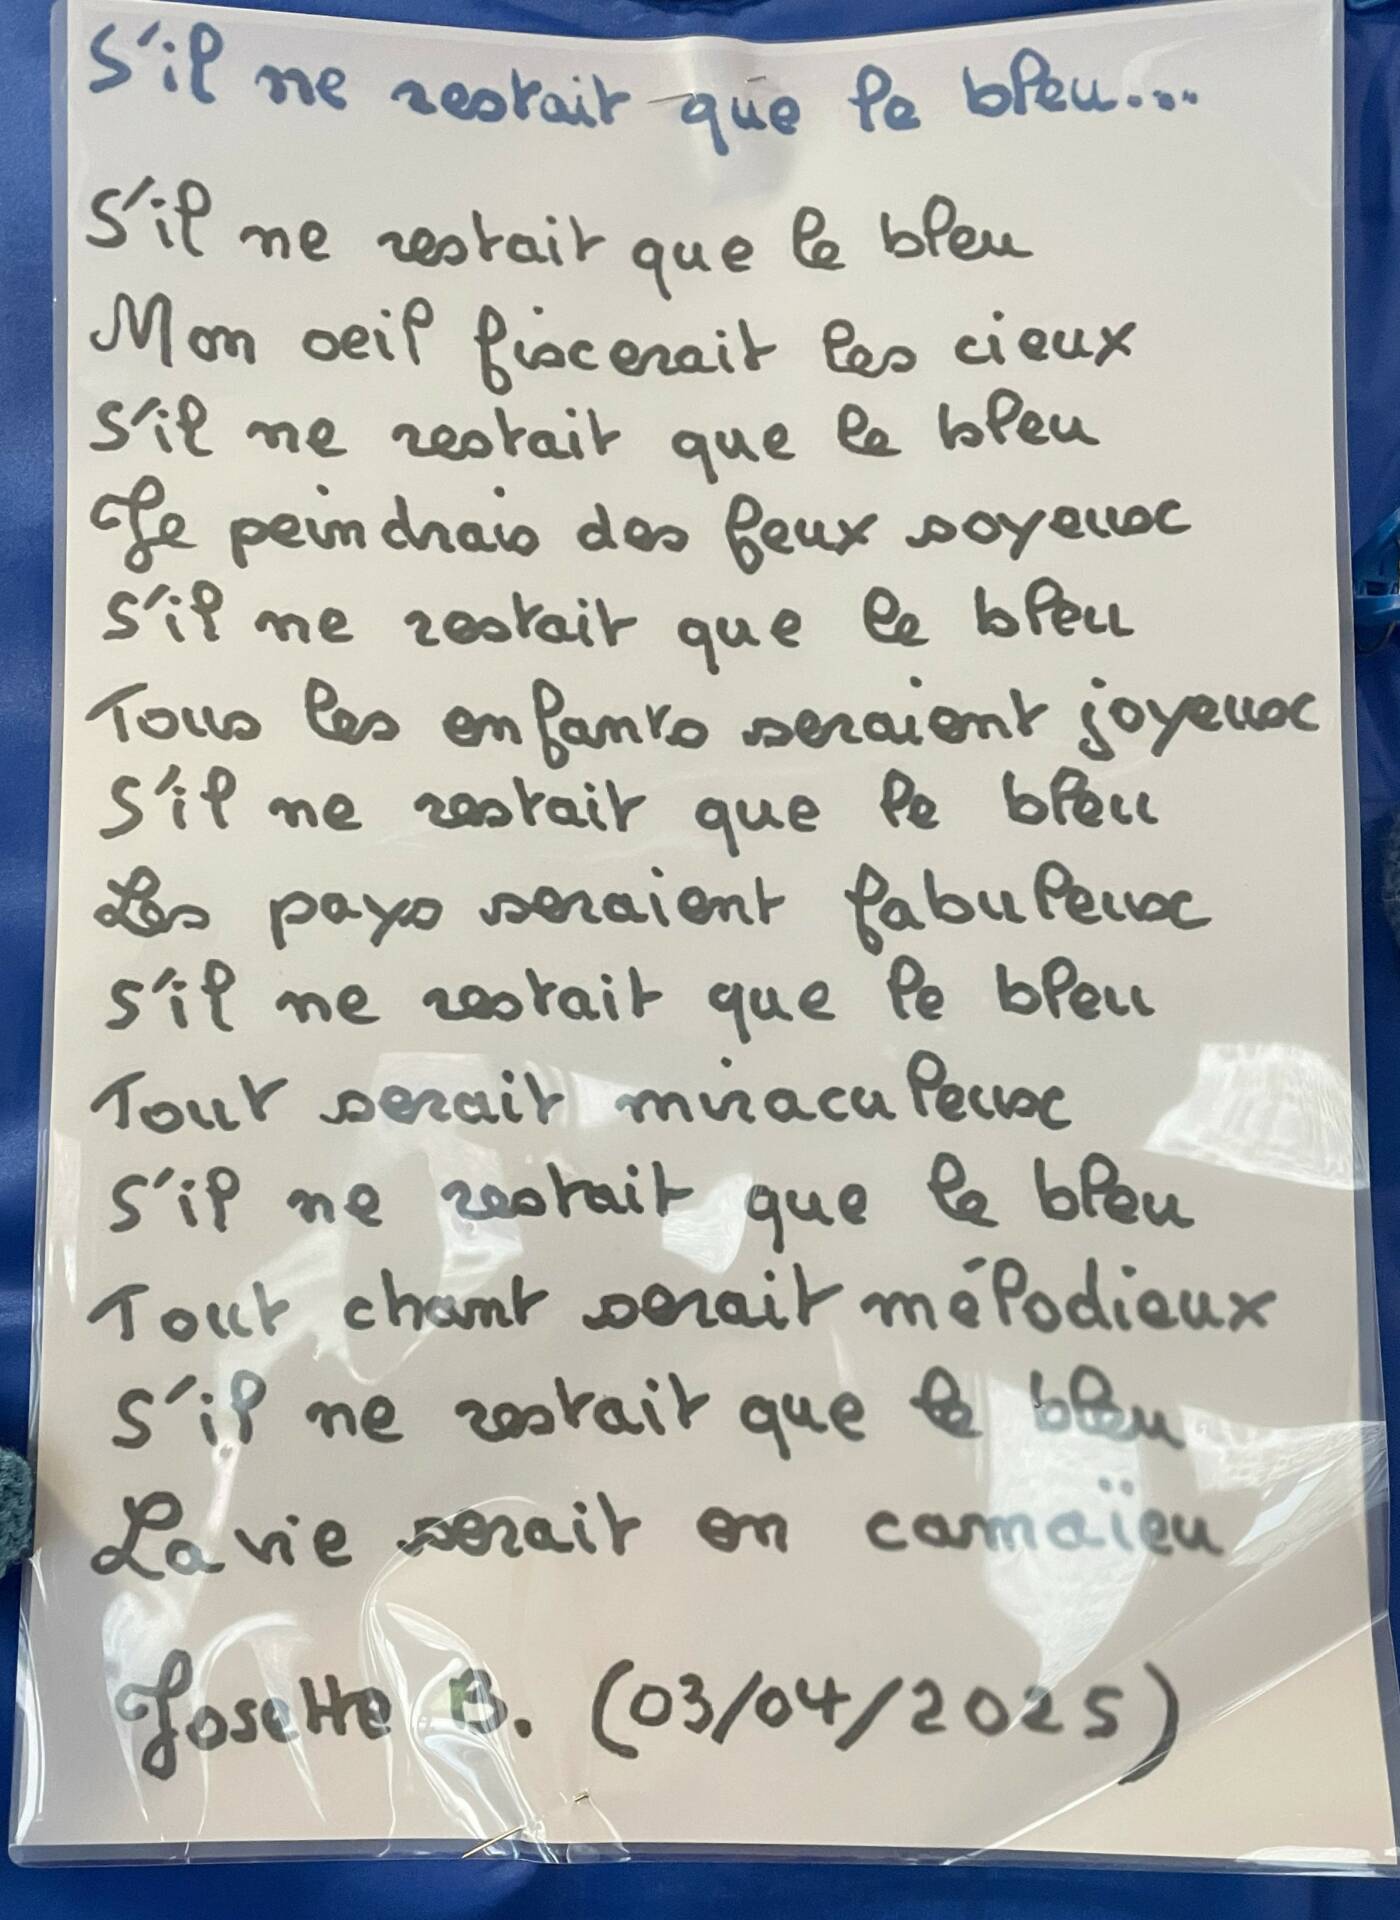 S'il ne restait que le bleu...
S'il ne restait que le bleu
Mon oeil fixerait les cieux
S'il ne restait que le bleu
Je peindrais des feux soyeux
S'il ne restait que le bleu
Tous les enfants seraient joyeux
S'il ne restait que le bleu
Les pays seraient fabuleux
S'il ne restait que le bleu
Tout serait miraculeux
S'il ne restait que le bleu
Tout chant serait mélodieux
S'il ne restait que le bleu
La vie serait en camaïeu
Josette B. (03/04/2025)